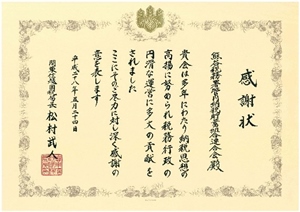 感謝状
熊谷税務署管内納税貯蓄組合連合会殿
貴会は多年にわたり納税思想の
高揚に努められ税務行政の
円滑な運営に多大の貢献を
されました
ここにそのご尽力に対し深く感謝の
意を表します
平成二八年五月二十四日
関東信越国税局長 松村武人